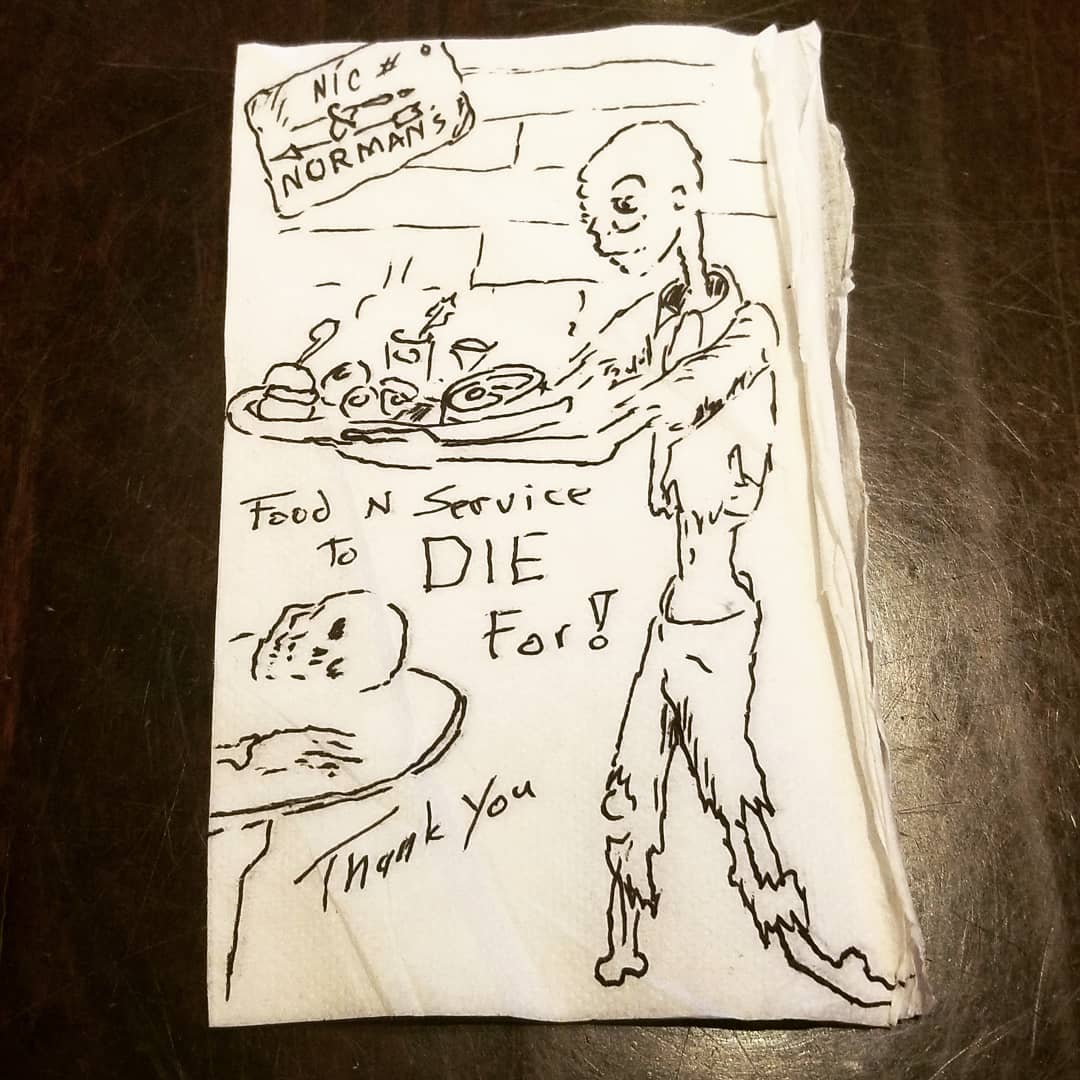 NIC #
&
NORMAN'S
Food N Service
To DIE
For!
Thank You